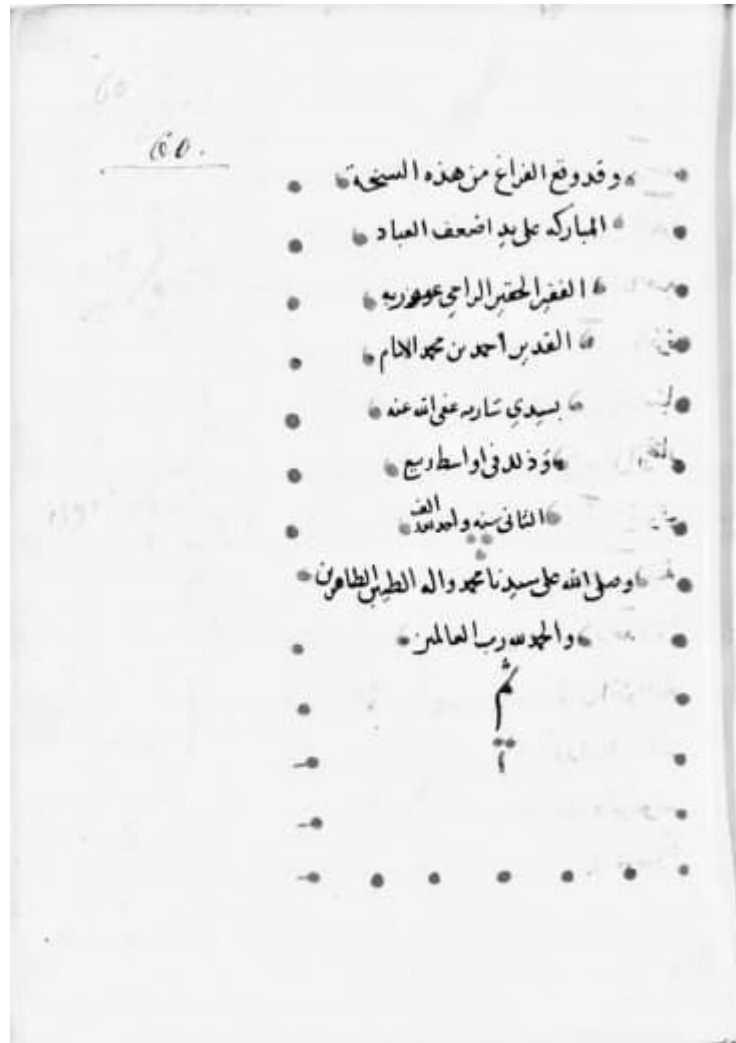 ٦٥٠
وقد وقع الفراغ من هذه النسخة
المباركه على يد اضعف العباد
الفقير الحقير الراجي عفو ربه
القدير أحمد بن محمد الامام
بسيدي عفى الله عنه
وذلك فى اواسط ربيع
الثانى سنه الف
وصلى الله على سيدنا محمد واله الطيبين الطاهرين
والحمد لله رب العالمين
تم